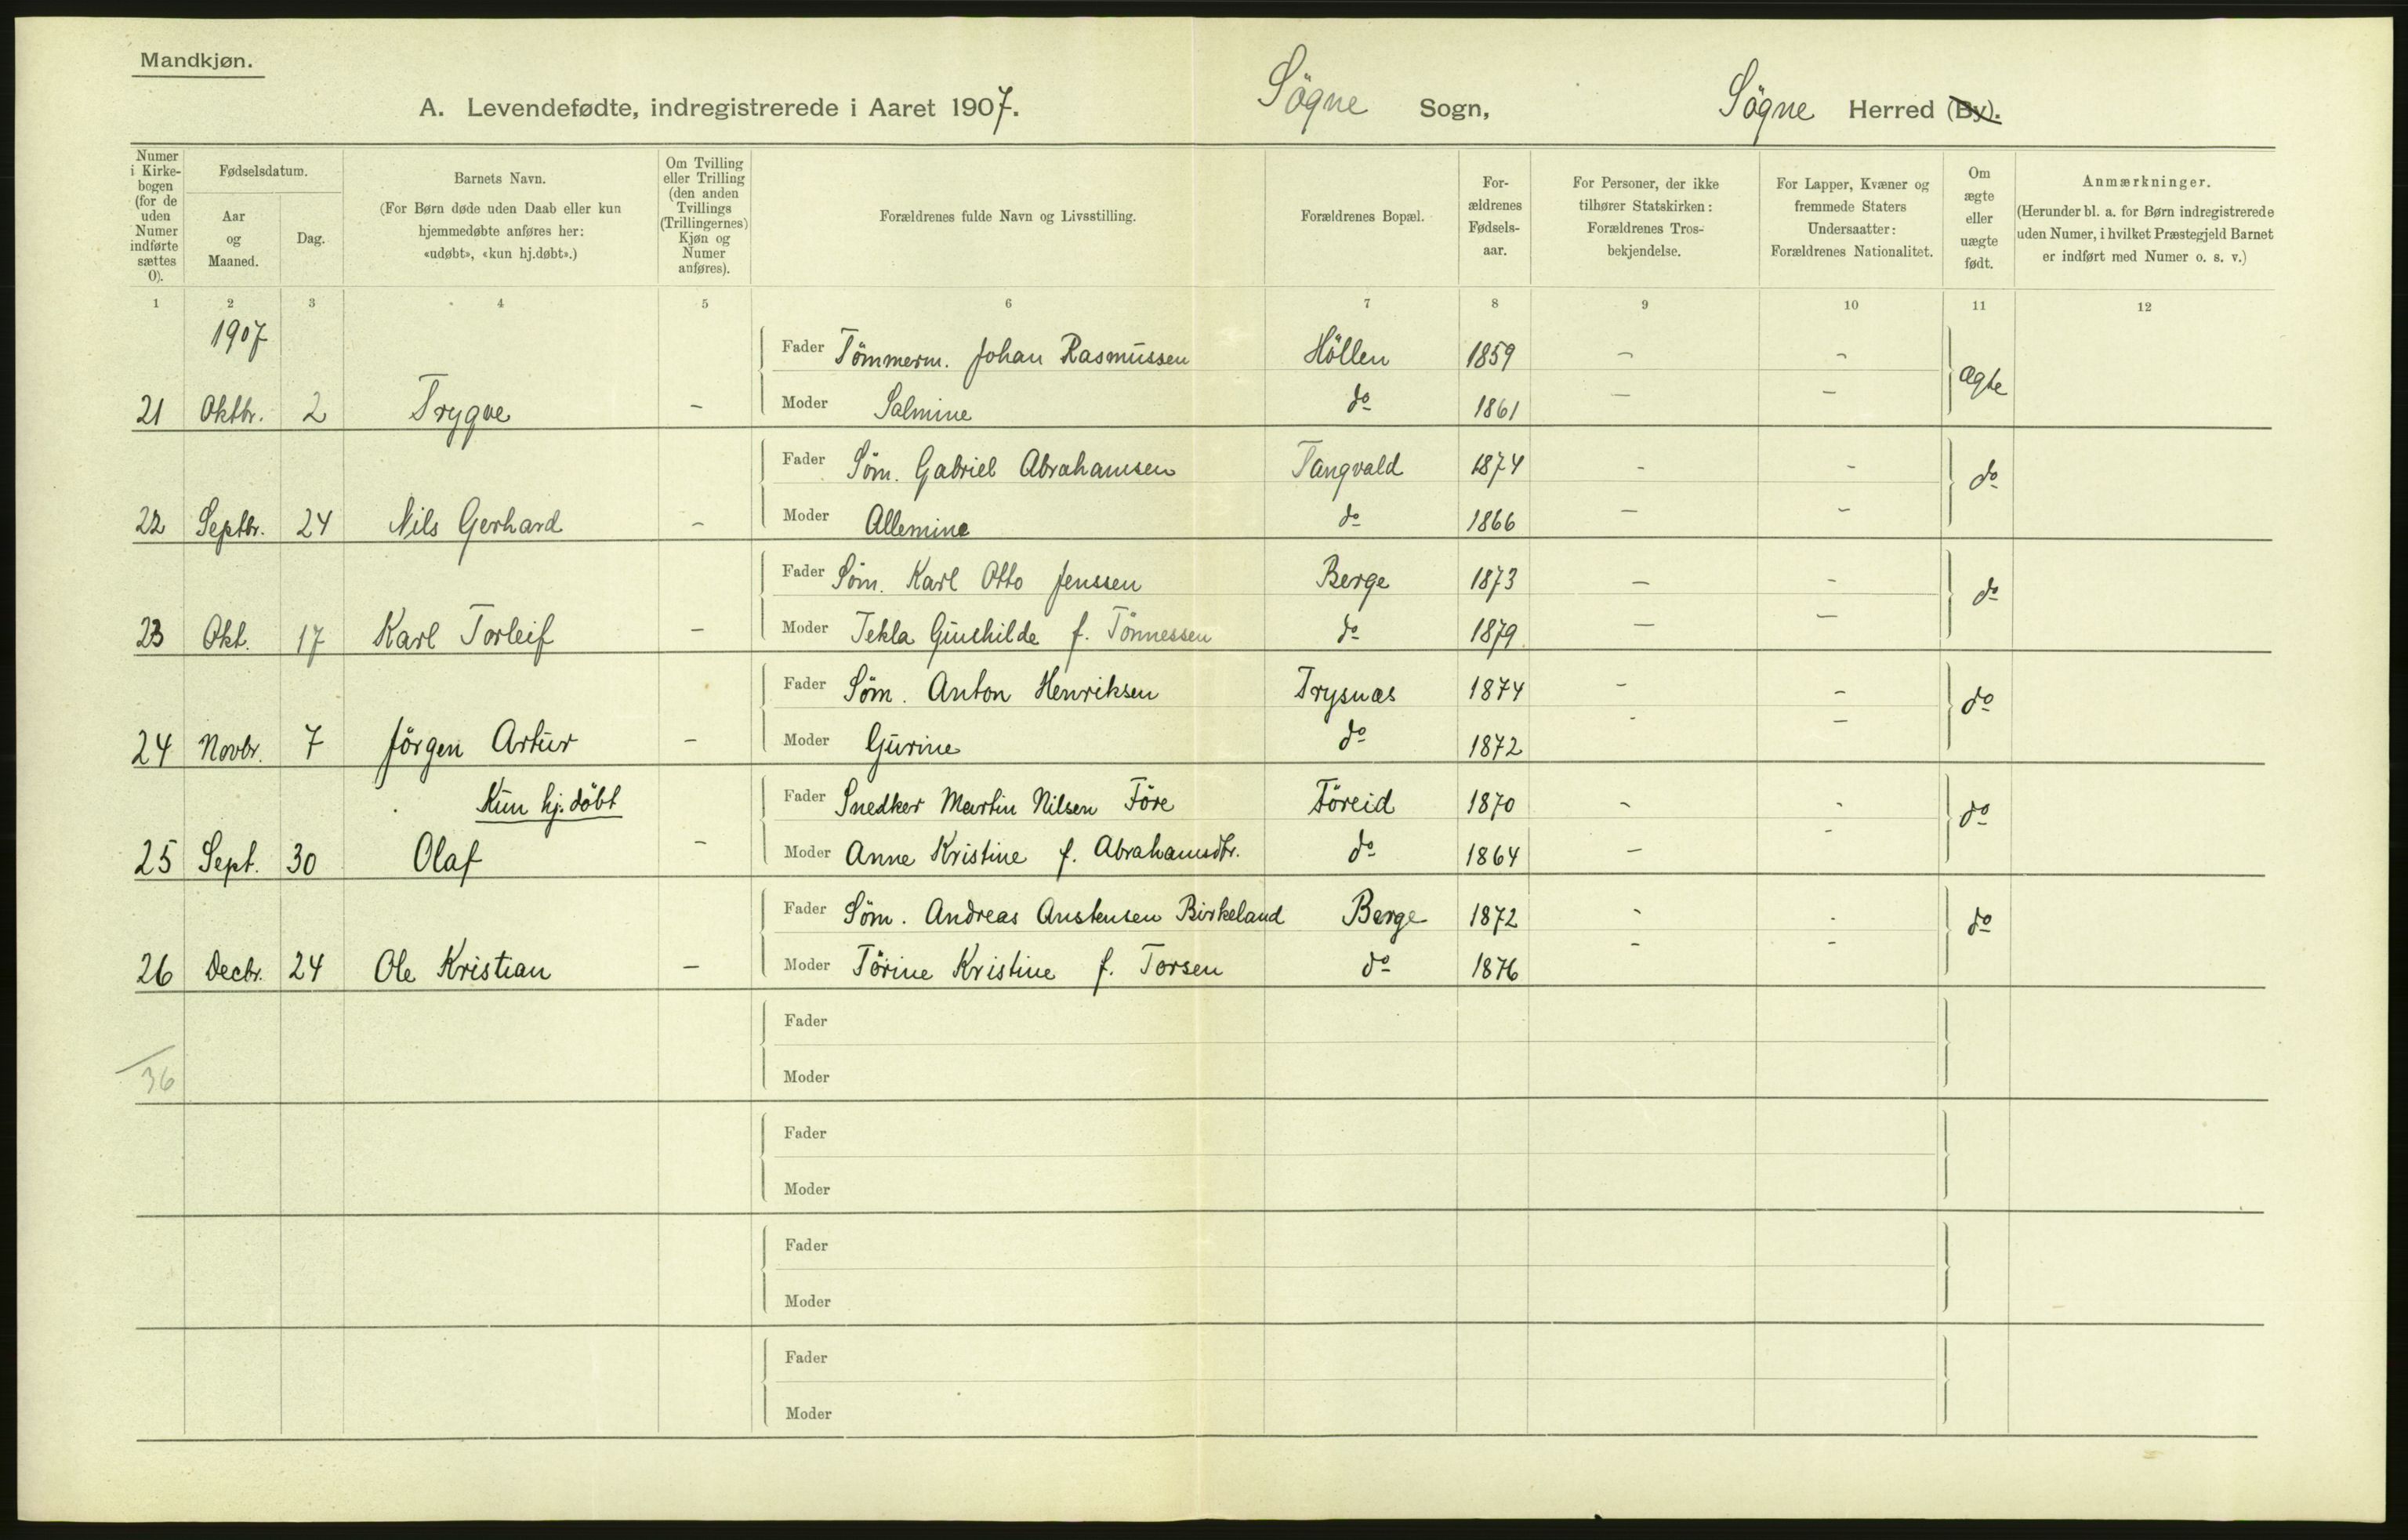 Mandkjøn.
A. Levendefødte, indregistrerede i Aaret 1907. Søgne Sogn, Søgne Herred (By).
Numer i Kirke-bogen (for de uden Numer indførte sættes 0).
Fødselsdatum.
Aar og Maaned.
Dag.
Barnets Navn.
(For Børn døde uden Daab eller kun hjemmedøbte anføres her: «udøbt», «kun hj.døbt».)
Om Tvilling eller Trilling (den anden Tvillings (Trillingernes) Kjøn og Numer anføres).
Forældrenes fulde Navn og Livsstilling.
Forældrenes Bopæl.
For-ældrenes Fødsels-aar.
For Personer, der ikke tilhører Statskirken: Forældrenes Tros-bekjendelse.
For Lapper, Kvæner og fremmede Staters Undersaatter: Forældrenes Nationalitet.
Om ægte eller uægte født.
Anmærkninger.
(Herunder bl. a. for Børn indregistrerede uden Numer, i hvilket Præstegjeld Barnet er indført med Numer o. s. v.)
1 2 3 4 5 6 7 8 9 10 11 12
1907
Fader Tömmerm. Johan Rasmussen Höllen 1859 - - ægte
21 Oktbr. 2 Trygve - Moder Salmine do 1861 - -
Fader Söm. Gabriel Abrahamsen Tangvald 1874 - - do
22 Septbr. 24 Nils Gerhard - Moder Allemine do 1866 - -
Fader Söm. Karl Otto Jenssen Berge 1873 - - do
23 Okt. 17 Karl Torleif - Moder Tekla Gunhilde f. Tönnessen do 1879 - -
Fader Söm. Anton Henriksen Trysnæs 1874 - - do
24 Novbr. 7 Jörgen Artur - Moder Gurine do 1872 - -
Kun hj. döbt Fader Snedker Martin Nilsen Före Föreid 1870 - - do
25 Sept. 30 Olaf - Moder Anne Kristine f. Abrahamsdtr. do 1864 - -
Fader Söm. Andreas Anstensen Birkeland Berge 1872 - - do
26 Decbr. 24 Ole Kristian - Moder Törine Kristine f. Torsen do 1876 - -
Fader
36 Moder
Fader
Moder
Fader
Moder
Fader
Moder